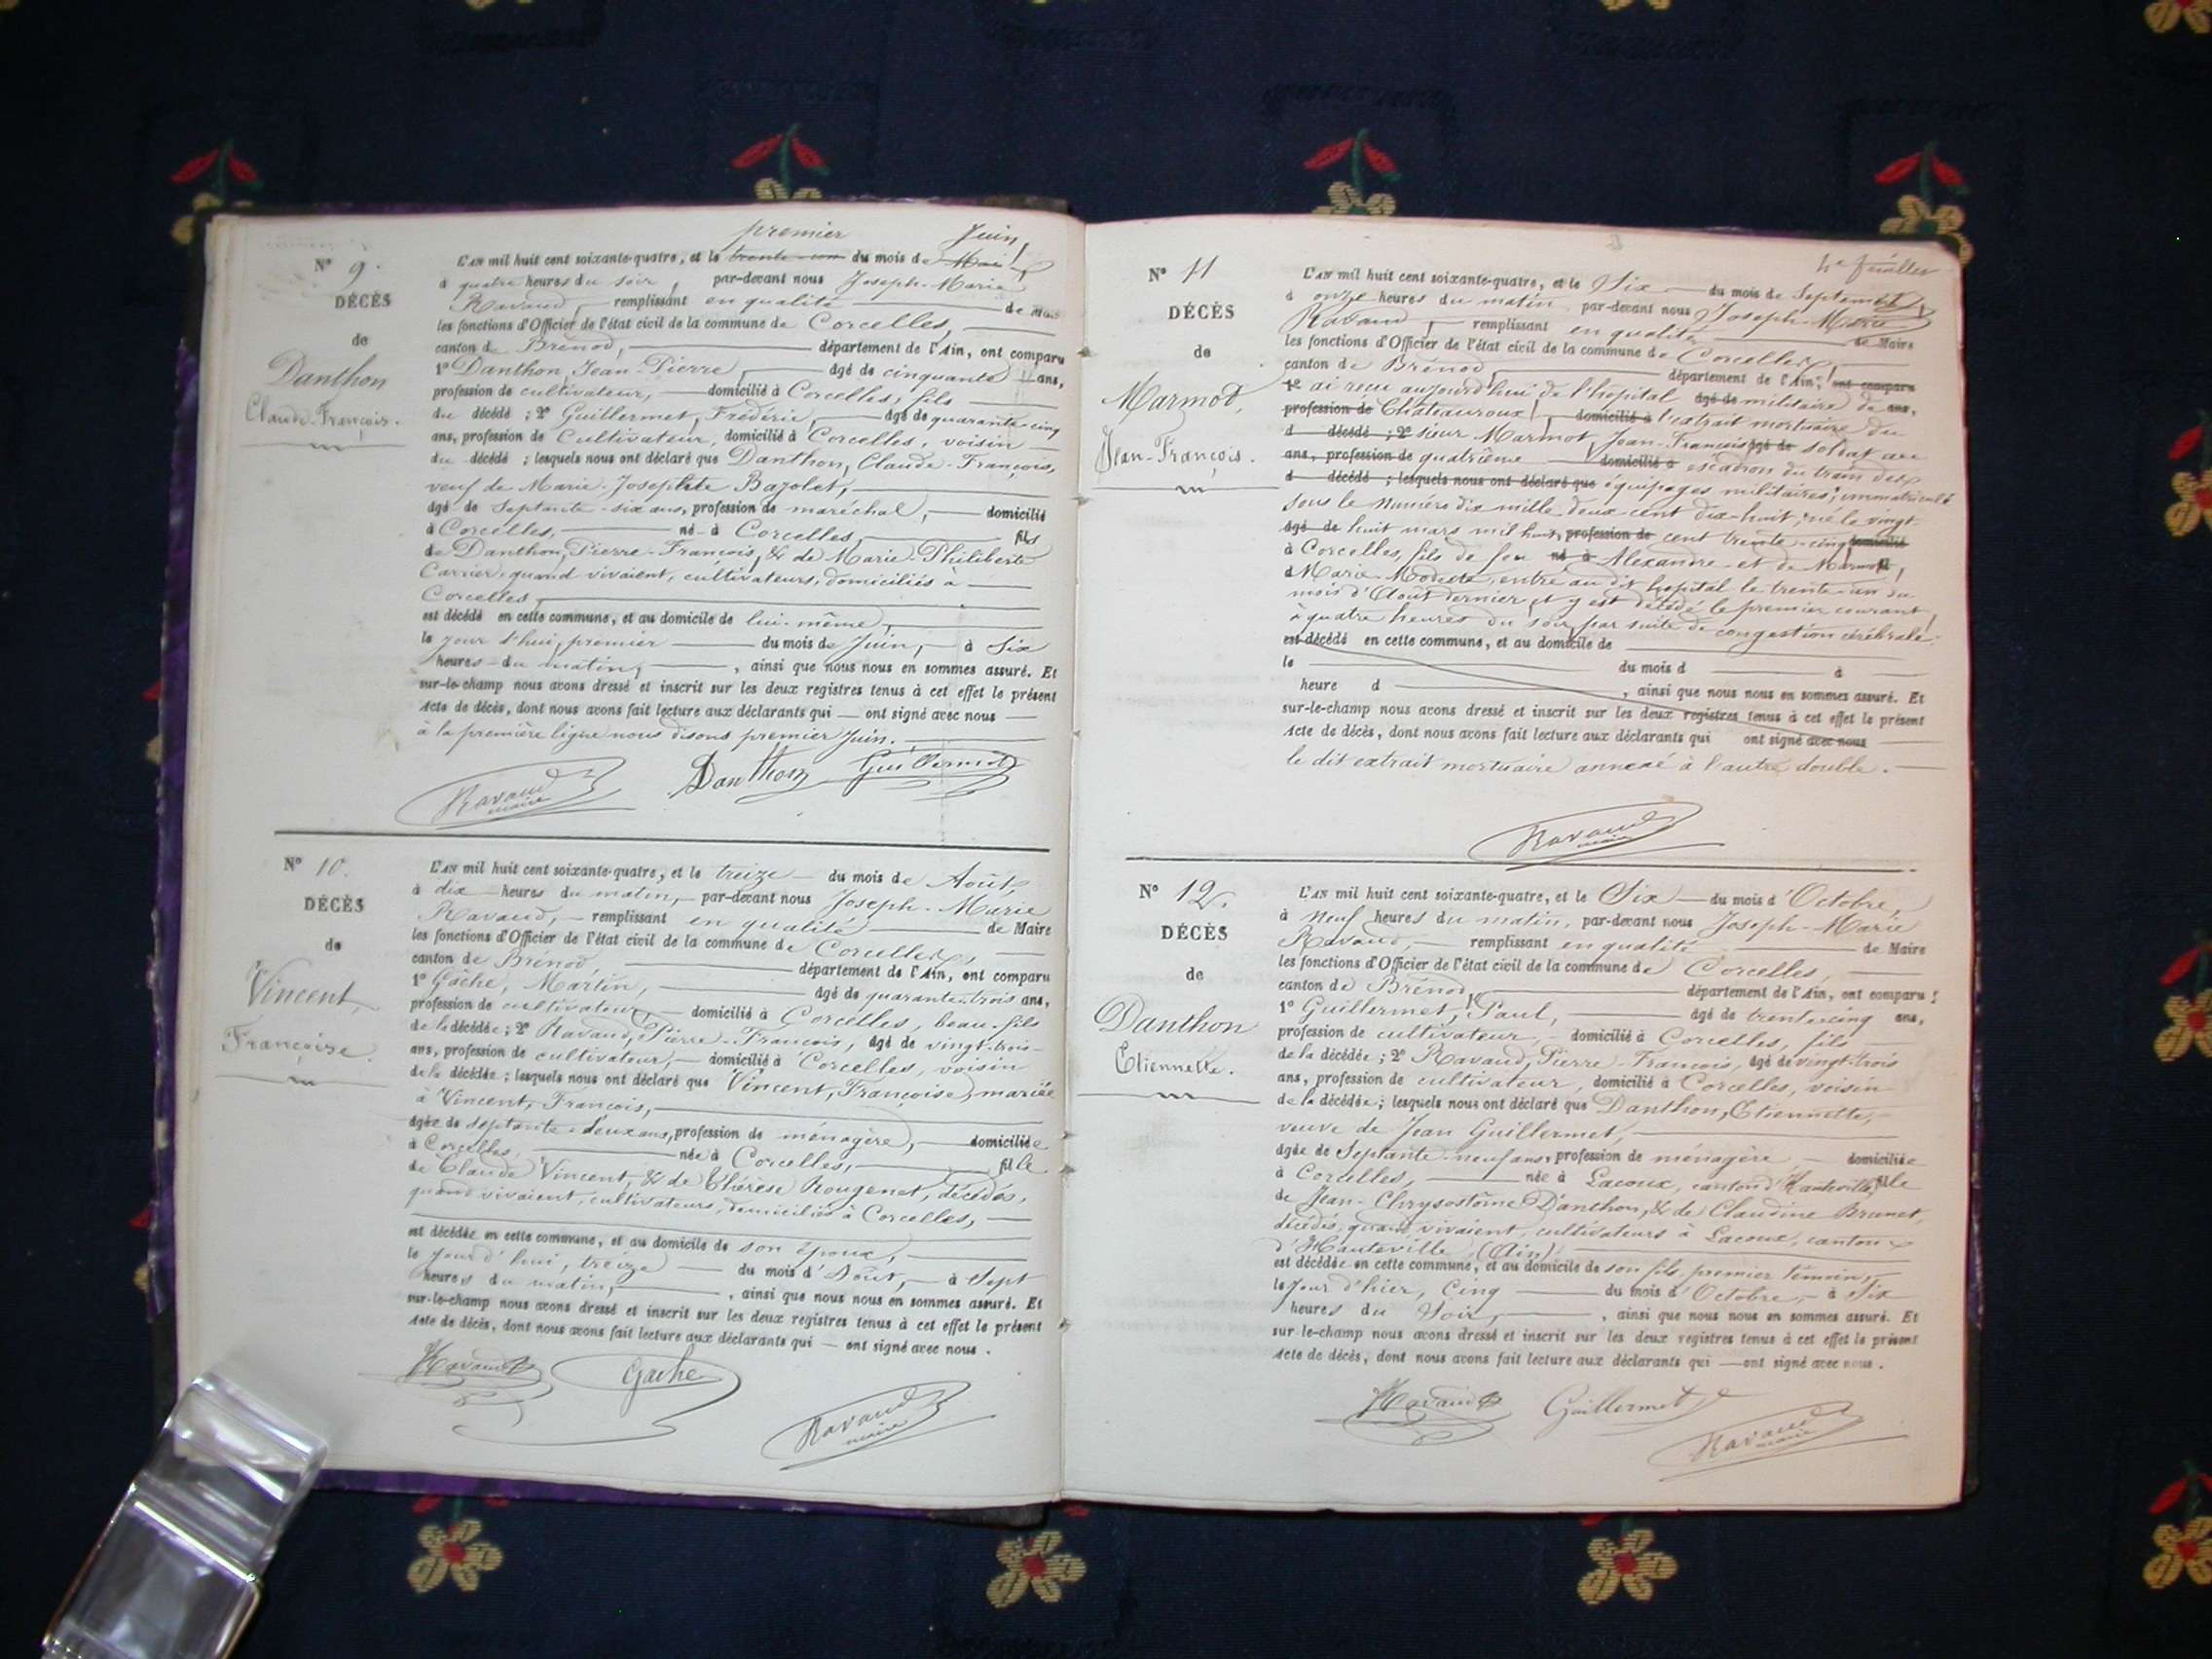 premier Juin
N° 9.
DÉCÈS
de
Danthon
Claude-François.
L'AN mil huit cent soixante-quatre, et le trente-un du mois de Mai
à quatre heures du soir, par-devant nous Joseph-Marie
Ravaud, remplissant en qualité de Maire
les fonctions d'Officier de l'état civil de la commune de Corcelles,
canton de Brénod, département de l'Ain, ont comparu
1° Danthon Jean-Pierre, âgé de cinquante ans,
profession de cultivateur, domicilié à Corcelles, fils
du décédé ; 2° Guillermet, Frédéric, âgé de quarante-cinq
ans, profession de Cultivateur, domicilié à Corcelles, voisin
du décédé ; lesquels nous ont déclaré que Danthon, Claude-François,
veuf de Marie-Josephte Bazolet,
âgé de Septante-six ans, profession de maréchal, domicilié
à Corcelles, né à Corcelles, fils
de Danthon, Pierre-François, & de Marie-Philiberte
Carrier, quand vivaient, cultivateurs, domiciliés à
Corcelles,
est décédé en cette commune, et au domicile de lui-même,
le jour d'hui, premier du mois de Juin, à Six
heures du matin, , ainsi que nous nous en sommes assuré. Et
sur-le-champ nous avons dressé et inscrit sur les deux registres tenus à cet effet le présent
Acte de décès, dont nous avons fait lecture aux déclarants qui ont signé avec nous
à la première ligne nous disons premier Juin.
Ravaud maire Danthon Guillermet
N° 10.
DÉCÈS
de
Vincent,
Françoise.
L'AN mil huit cent soixante-quatre, et le treize du mois de Août,
à dix heures du matin, par-devant nous Joseph-Marie
Ravaud, remplissant en qualité de Maire
les fonctions d'Officier de l'état civil de la commune de Corcelles,
canton de Brénod, département de l'Ain, ont comparu
1° Gâche, Martin, âgé de quarante-trois ans,
profession de cultivateur, domicilié à Corcelles, beau-fils
de la décédée ; 2° Ravaud, Pierre-François, âgé de vingt-trois
ans, profession de cultivateur, domicilié à Corcelles, voisin
de la décédée ; lesquels nous ont déclaré que Vincent, Françoise, mariée
à Vincent, François,
âgée de septante-deux ans, profession de ménagère, domiciliée
à Corcelles, née à Corcelles, fille
de Claude Vincent, & de Thérèse Rougenet, décédés,
quand vivaient, cultivateurs, domiciliés à Corcelles,
est décédée en cette commune, et au domicile de son époux,
le jour d'hui, treize du mois d'Août, à Sept
heures du matin, , ainsi que nous nous en sommes assuré. Et
sur-le-champ nous avons dressé et inscrit sur les deux registres tenus à cet effet le présent
Acte de décès, dont nous avons fait lecture aux déclarants qui ont signé avec nous.
Ravaud Gache
Ravaud maire
4e feuillet
N° 11
DÉCÈS
de
Marmod,
Jean-François.
L'AN mil huit cent soixante-quatre, et le Six du mois de Septembre
à onze heures du matin, par-devant nous Joseph-Marie
Ravaud, remplissant en qualité de Maire
les fonctions d'Officier de l'état civil de la commune de Corcelles,
canton de Brénod, département de l'Ain, ont comparu
1° ai reçu aujourd'hui de l'hôpital âgé de militaire de ans,
profession de Châteauroux, domicilié à l'extrait mortuaire du
d décédé ; 2° sieur Marmot Jean-François âgé de soldat au
ans, profession de quatrième domicilié à escadron du train des
d décédé ; lesquels nous ont déclaré que équipages militaires, immatriculé
sous le Numéro dix mille deux-cent dix-huit, né le vingt
âgé de huit mars mil huit profession de cent trente-cinq domicilié
à Corcelles, fils de feu né à Alexandre et de Marmot,
d Marie Modeste, entré au dit hôpital le trente-un du
mois d'Août dernier et y est décédé le premier courant,
à quatre heures du soir par suite de congestion cérébrale.
est décédé en cette commune, et au domicile de
le du mois d à
heure d , ainsi que nous nous en sommes assuré. Et
sur-le-champ nous avons dressé et inscrit sur les deux registres tenus à cet effet le présent
Acte de décès, dont nous avons fait lecture aux déclarants qui ont signé avec nous
le dit extrait mortuaire annexé à l'autre double.
Ravaud maire
N° 12.
DÉCÈS
de
Danthon
Etiennette.
L'AN mil huit cent soixante-quatre, et le Six du mois d'Octobre,
à Neuf heures du matin, par-devant nous Joseph-Marie
Ravaud, remplissant en qualité de Maire
les fonctions d'Officier de l'état civil de la commune de Corcelles,
canton de Brénod, département de l'Ain, ont comparu :
1° Guillermet, Paul, âgé de trente-cinq ans,
profession de cultivateur, domicilié à Corcelles, fils
de la décédée ; 2° Ravaud, Pierre-François, âgé de vingt-trois
ans, profession de cultivateur, domicilié à Corcelles, voisin
de la décédée ; lesquels nous ont déclaré que Danthon, Etiennette,
veuve de Jean Guillermet,
âgée de Septante-neuf ans, profession de ménagère, domiciliée
à Corcelles, née à Lacoux, canton d'Hauteville, fille
de Jean-Chrysostôme Danthon, & de Claudine Brunet,
décédés, quand vivaient, cultivateurs à Lacoux, canton
d'Hauteville, (Ain),
est décédée en cette commune, et au domicile de son fils, premier témoin,
le jour d'hier, Cinq du mois d'Octobre, à Six
heures du Soir, , ainsi que nous nous en sommes assuré. Et
sur-le-champ nous avons dressé et inscrit sur les deux registres tenus à cet effet le présent
Acte de décès, dont nous avons fait lecture aux déclarants qui ont signé avec nous.
Ravaud Guillermet
Ravaud maire